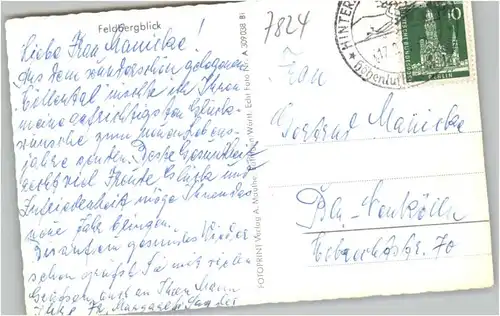 Feldbergblick
7824
Liebe Frau Manicke!
Aus dem wunderschön gelegenen
möchte ich Ihnen
meine aufrichtigsten Glück-
wünsche zum neuen Lebens-
jahre senden. Beste Gesundheit
recht viel Freude Glück und
Zufriedenheit möge Ihnen das
neue Jahr bringen.
gesundes Wieder-
sehen grüßt Sie mit vielen
Grüßen auch an Ihren Mann
Ihre Fr.
FOTOPRINT Verlag A.
Württ. Echt Foto Nr. A 309038 Bi
HINTER
Höhenluft
10
BERLIN
Frau
Gertrud Manicke
Bln-Neukölln
70